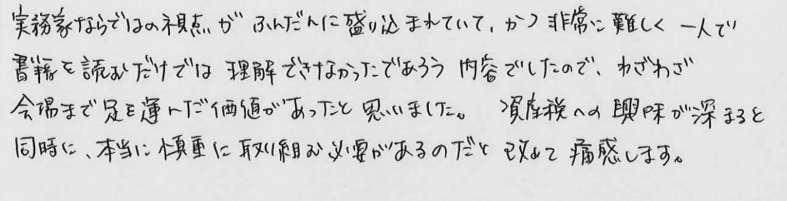 実務家ならではの視点がふんだんに盛り込まれていて、かつ非常に難しく一人で
書籍を読むだけでは理解できなかったであろう内容でしたので、わざわざ
会場まで足を運んだ価値があったと思いました。資産税への興味が深まると
同時に、本当に慎重に取り組む必要があるのだと改めて痛感します。